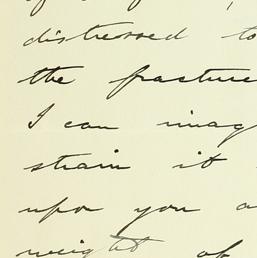 distressed to
the fracture
I can imag
strain it
upon you a
weight of